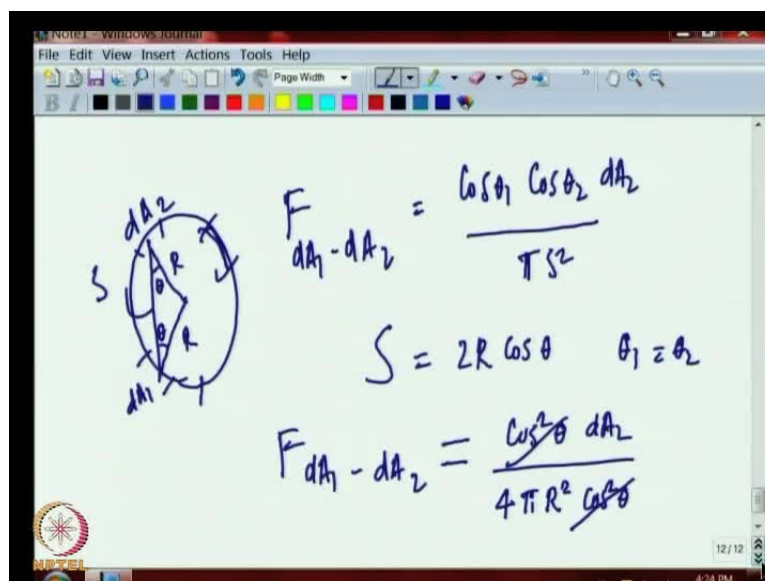 Note1 - Windows Journal
File Edit View Insert Actions Tools Help
Page Width
B I
dA2
S
R
θ
θ
R
dA1
F dA1 - dA2 = Cosθ1 Cosθ2 dA2 / πS²
S = 2R Cosθ θ1 = θ2
F dA1 - dA2 = Cos²θ dA2 / 4πR² Cos²θ
12/12
NPTEL
4:24 PM